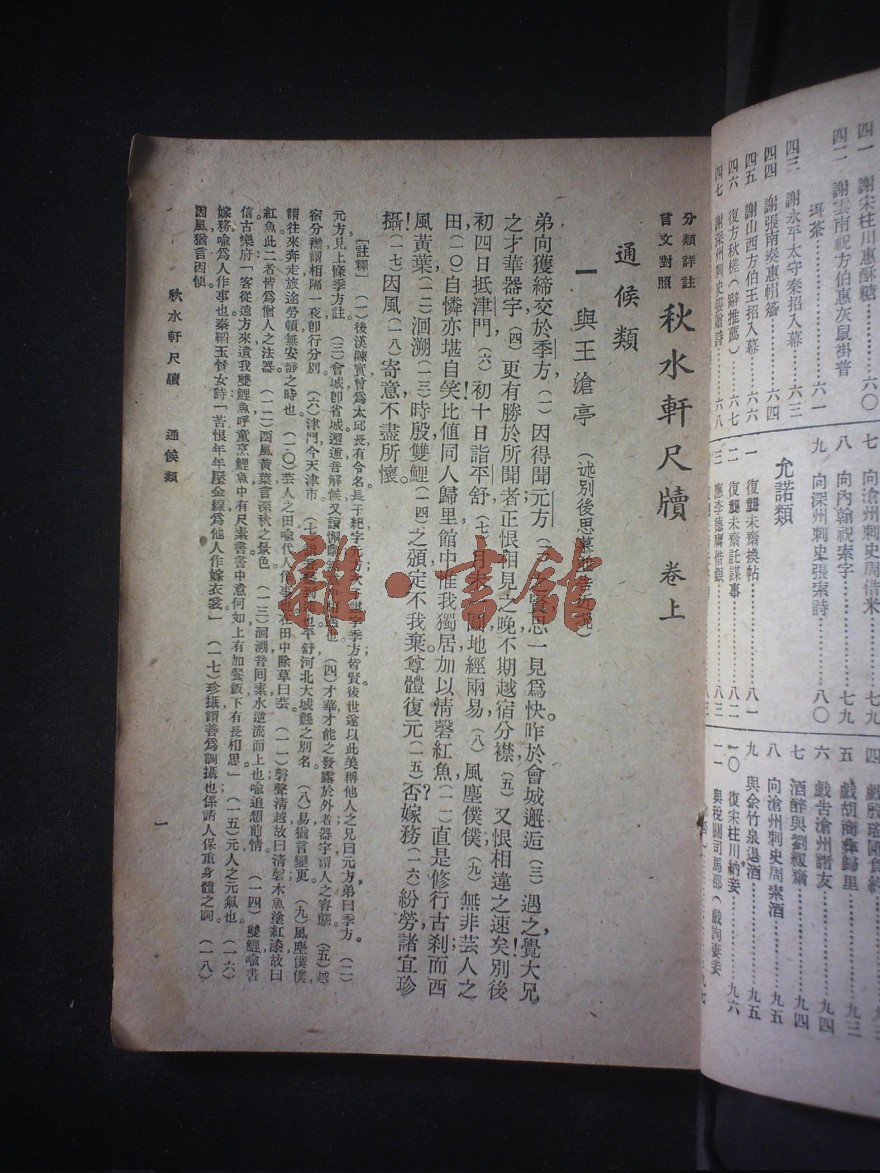 四一 謝宋柱川惠酥糖……六〇
四二 謝雲南祝方伯惠灰鼠褂普
洱茶……六一
四三 謝永平太守秦招入幕……六三
四四 謝張南奏惠帽簷……六四
四五 謝山西方伯王招入幕……六六
四六 復方秋槎(辭推薦)……六七
四七 謝深州刺史張鷫詩……六八
七 向滄州刺史周借米……七九
八 向內翰祝索字……七九
九 向深州刺史張索詩……八〇
允諾類
一 復龔未齋換帖……八一
二 復龔未齋託謀事……八二
三 應李德膚借銀……八三
五 戲胡商彝歸里……九三
六 戲告滄州諸友……九四
七 酒醉與劉樨齋……九四
八 向滄州刺史周索酒……九五
九 與余竹泉過酒……九五
一〇 復宋柱川納妾……九六
一一 與稅關司馬邵(戲詢妻妾
分類詳註
言文對照
秋水軒尺牘 卷上
通候類
一 與王滄亭
弟向獲締交於季方,(一)因得聞元方(二)之賢,思一見爲快。昨於會城邂逅,(三)遇之,覺大兄
之才華器宇,(四)更有勝於所聞者,正恨相見之晚,不期越宿分襟,(五)又恨相違之速矣!別後
初四日抵津門,(六)初十日詣平舒,(七)月未一圓,地經兩易,(八)風塵僕僕,(九)無非芸人之
田,(一〇)自憐亦堪自笑!比值同人歸里,館中惟我獨居,加以清磬紅魚,(一一)直是修行古刹;而西
風黃葉,(一二)洄溯(一三)時殷,雙鯉(一四)之頒,定不我棄。尊體復元(一五)否?嫁務(一六)紛勞,諸宜珍
攝!(一七)因風(一八)寄意,不盡所懷。
〔註釋〕(一)後漢陳寔曾爲太邱長有令名,長子紀字元方,次子諶字季方,皆賢,後世遂以此美稱他人之兄曰元方,弟曰季方。(二)
元方見上條季方註。(三)會城卽省城,邂逅音解候,又讀懈
宿分襟謂相隔一夜卽行分別。(六)津門今天津市。(七)
謂往來奔走旅途勞頓無安靜之時也。(一〇)芸人之田喩代人作事也,在田中除草曰芸。(一一)磬聲清越故曰清磬,木魚塗紅漆故曰
紅魚,此二者皆爲僧人之法器。(一二)西風黃葉言深秋之景色。(一三)洄溯音回素,水逆流而上也,喩追想前情。(一四)雙鯉喩書
信,古樂府「客從遠方來,遺我雙鯉魚,呼童烹鯉魚,中有尺素書,書中意何如,上有加餐飯,下有長相思」。(一五)元人之元氣也。(一六)
嫁務喩爲人作事也,秦韜玉貧女詩「苦恨年年壓金線,爲他人作嫁衣裳」。(一七)珍攝謂善爲調攝也,係請人保重身體之詞。(一八)
因風猶言因便。
秋水軒尺牘 通候類
一
雜·書館